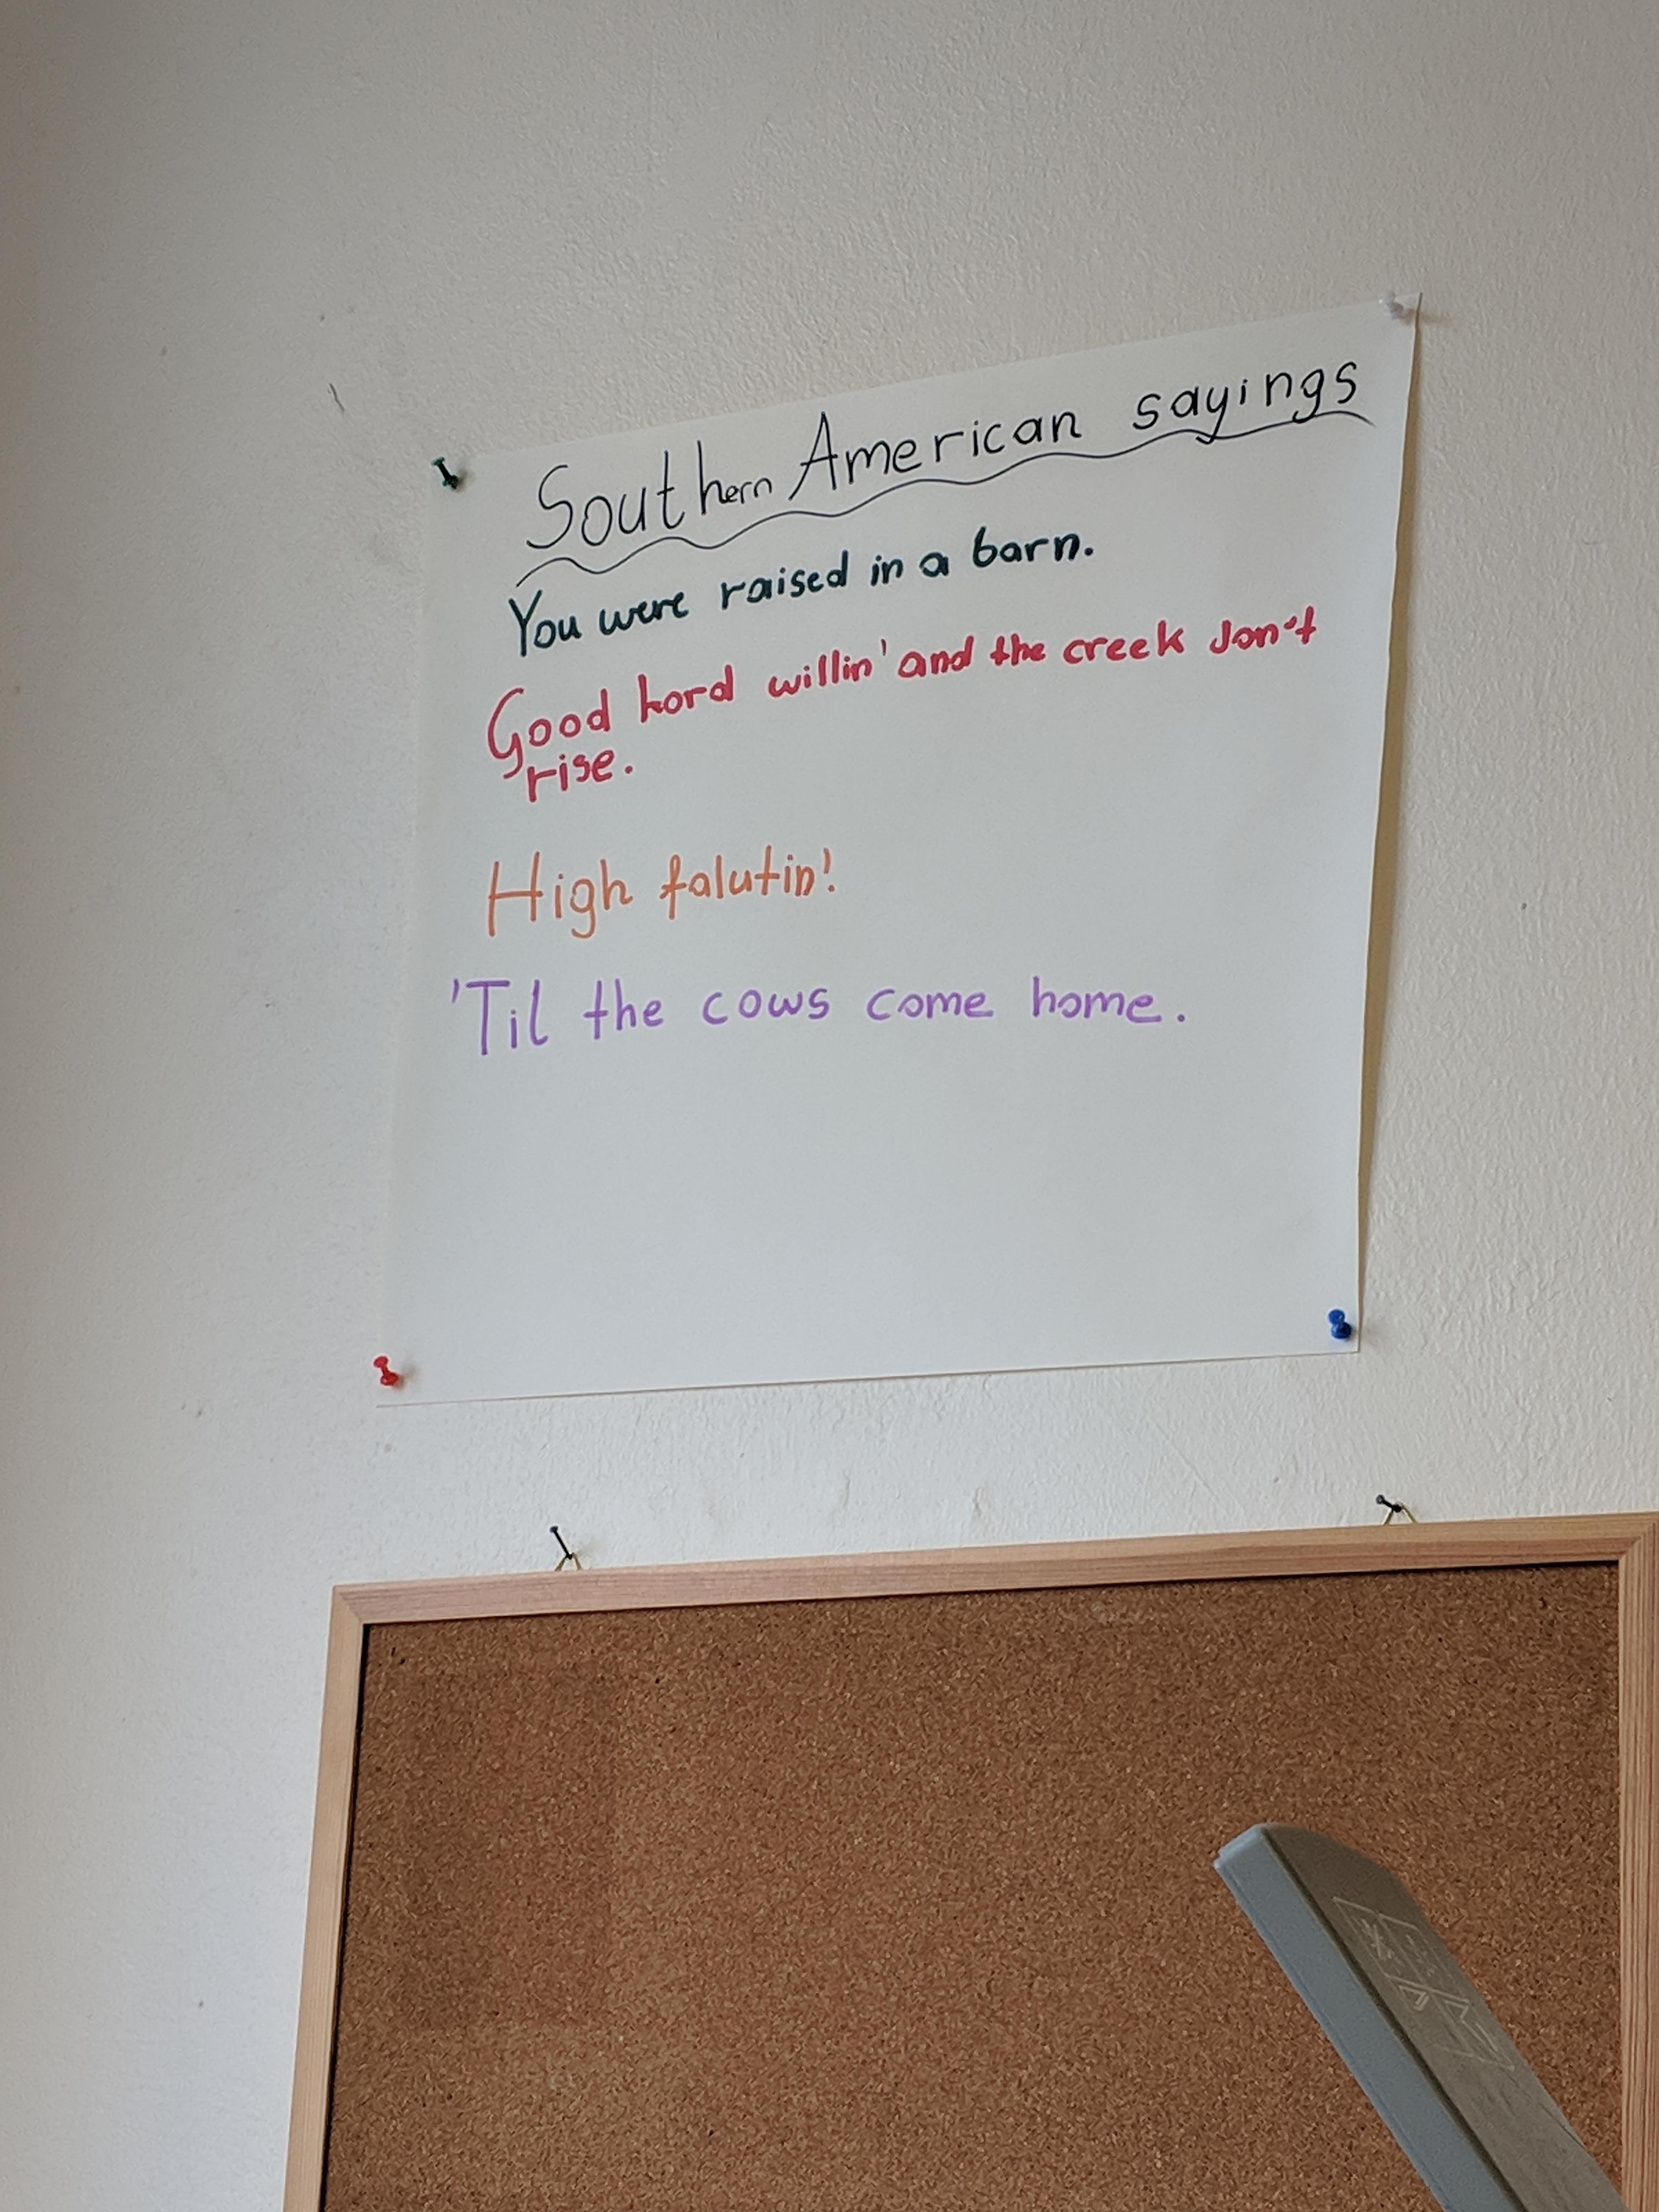 Southern American sayings
You were raised in a barn.
Good Lord willin' and the creek don't
rise.
High falutin!
'Til the cows come home.